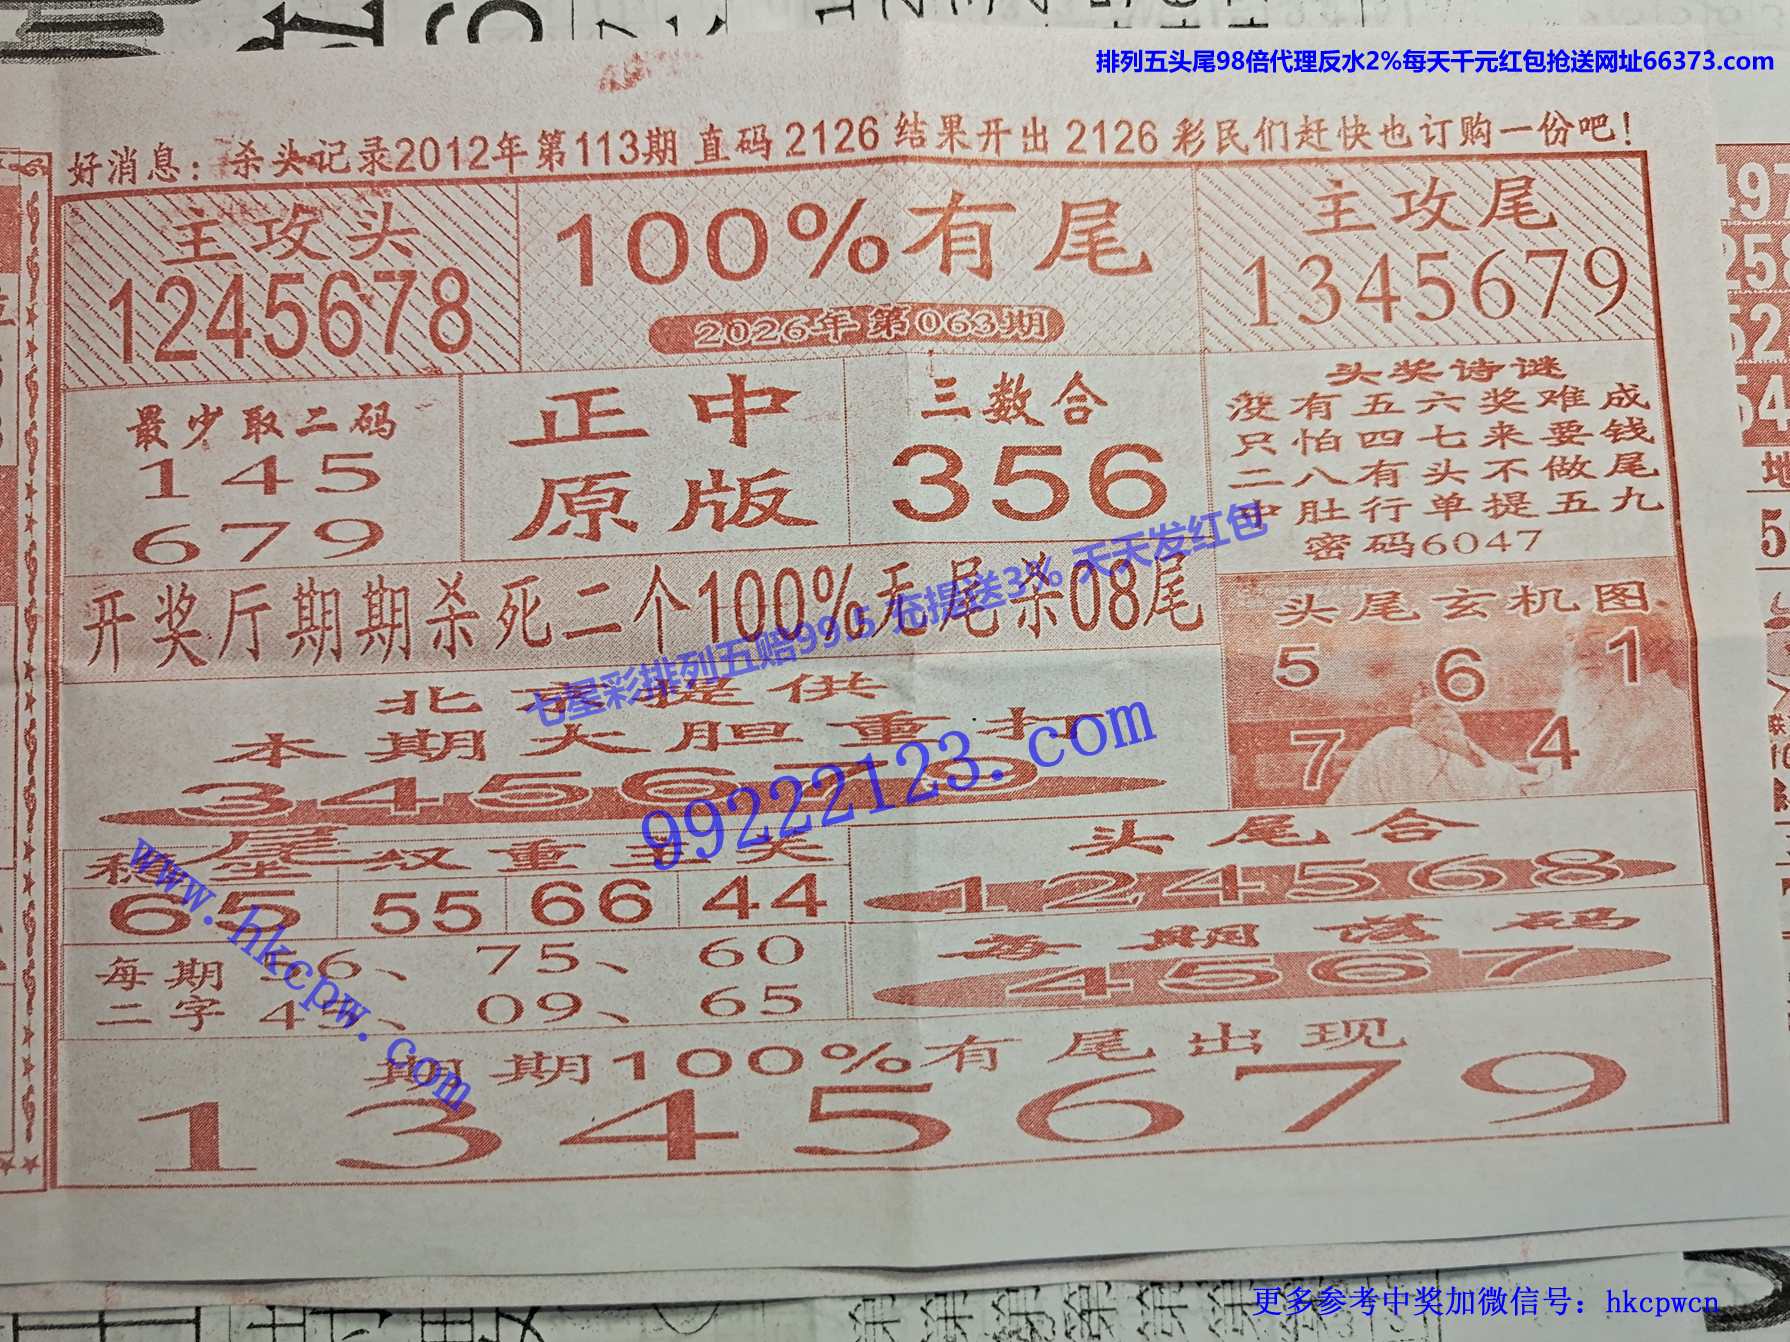 排列五头尾98倍代理反水2%每天千元红包抢送网址66373.com
好消息：杀头记录2012年第113期 直码 2126 结果开出 2126 彩民们赶快也订购一份吧！
主攻头
1245678
100%有尾
2026年第063期
主攻尾
1345679
最少取二码
145
679
正中
原版
三数合
356
头奖诗谜
没有五六奖难成
只怕四七来要钱
二八有头不做尾
中肚行单提五九
密码6047
开奖厅期期杀死二个100%无尾杀08尾
七星彩排列五赔99.5 充提送3% 天天发红包
头尾玄机图
5 6 1
7 4
北京提供
本期大胆重打
3456789
99222123.com
尾
双重主关
65 55 66 44
头尾合
124568
www.hkcpw.com
每期
二字
6、 75、 60
45、 09、 65
每期落码
4567
期期100%有尾出现
1345679
更多参考中奖加微信号：hkcpwcn